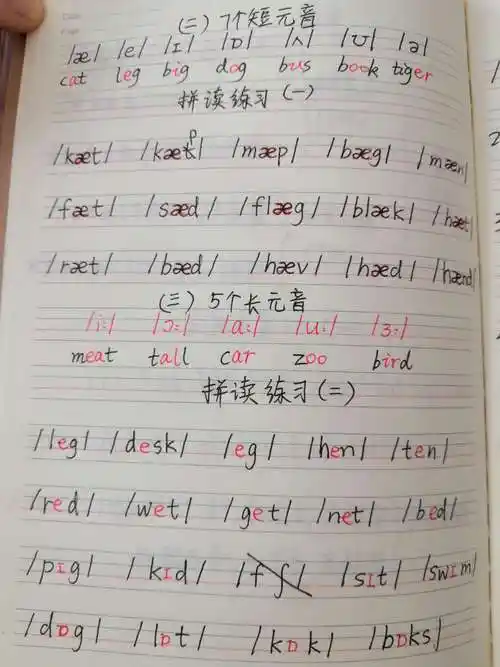 (二) 7个短元音
/æ/ /e/ /ɪ/ /ɒ/ /ʌ/ /ʊ/ /ə/
cat leg big dog bus book tiger
拼读练习(一)
/kæt/ /kæp/ /mæp/ /bæg/ /mæn/
/fæt/ /sæd/ /flæg/ /blæk/ /hæt/
/ræt/ /bæd/ /hæv/ /hæd/ /hænd/
(三) 5个长元音
/i:/ /ɔ:/ /a:/ /u:/ /ɜ:/
meat tall car zoo bird
拼读练习(二)
/leg/ /desk/ /eg/ /hen/ /ten/
/red/ /wet/ /get/ /net/ /bed/
/pɪg/ /kɪd/ /sɪt/ /swɪm/
/dɒg/ /lɒt/ /kɒk/ /bɒks/